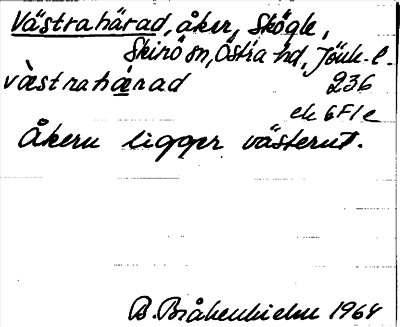 Västrahärad, åker, Skögle,
Skirö sn, Östra hd, Jönk. l.
västrahärad 236
ek 6F1e
Åkern ligger västerut.
B. Bråkenhielm 1964